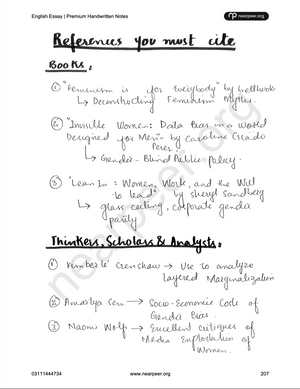 English Essay | Premium Handwritten Notes
nearpeer.org
References you must cite
Books:
① "Feminism is for Everybody" by bellhooks
↳ Deconstructing Feminism Myths.
② "Invisible Women: Data Bias in a World
Designed for Men" by Caroline Criado
Perez
↳ Gender-Blind Public Policy.
③ "Lean In: Women, Work, and the Will
to Lead" by Sheryl Sandberg
↳ glass-ceiling, corporate gender
parity
Thinkers, Scholars & Analysts:
① Kimberlé Crenshaw → Use to analyze
layered Marginalization
② Amartya Sen → Socio-Economic Code of
Gender Bias.
③ Naomi Wolf → Excellent critiques of
Media Exploitation of
Women.
03111444734
www.nearpeer.org
207